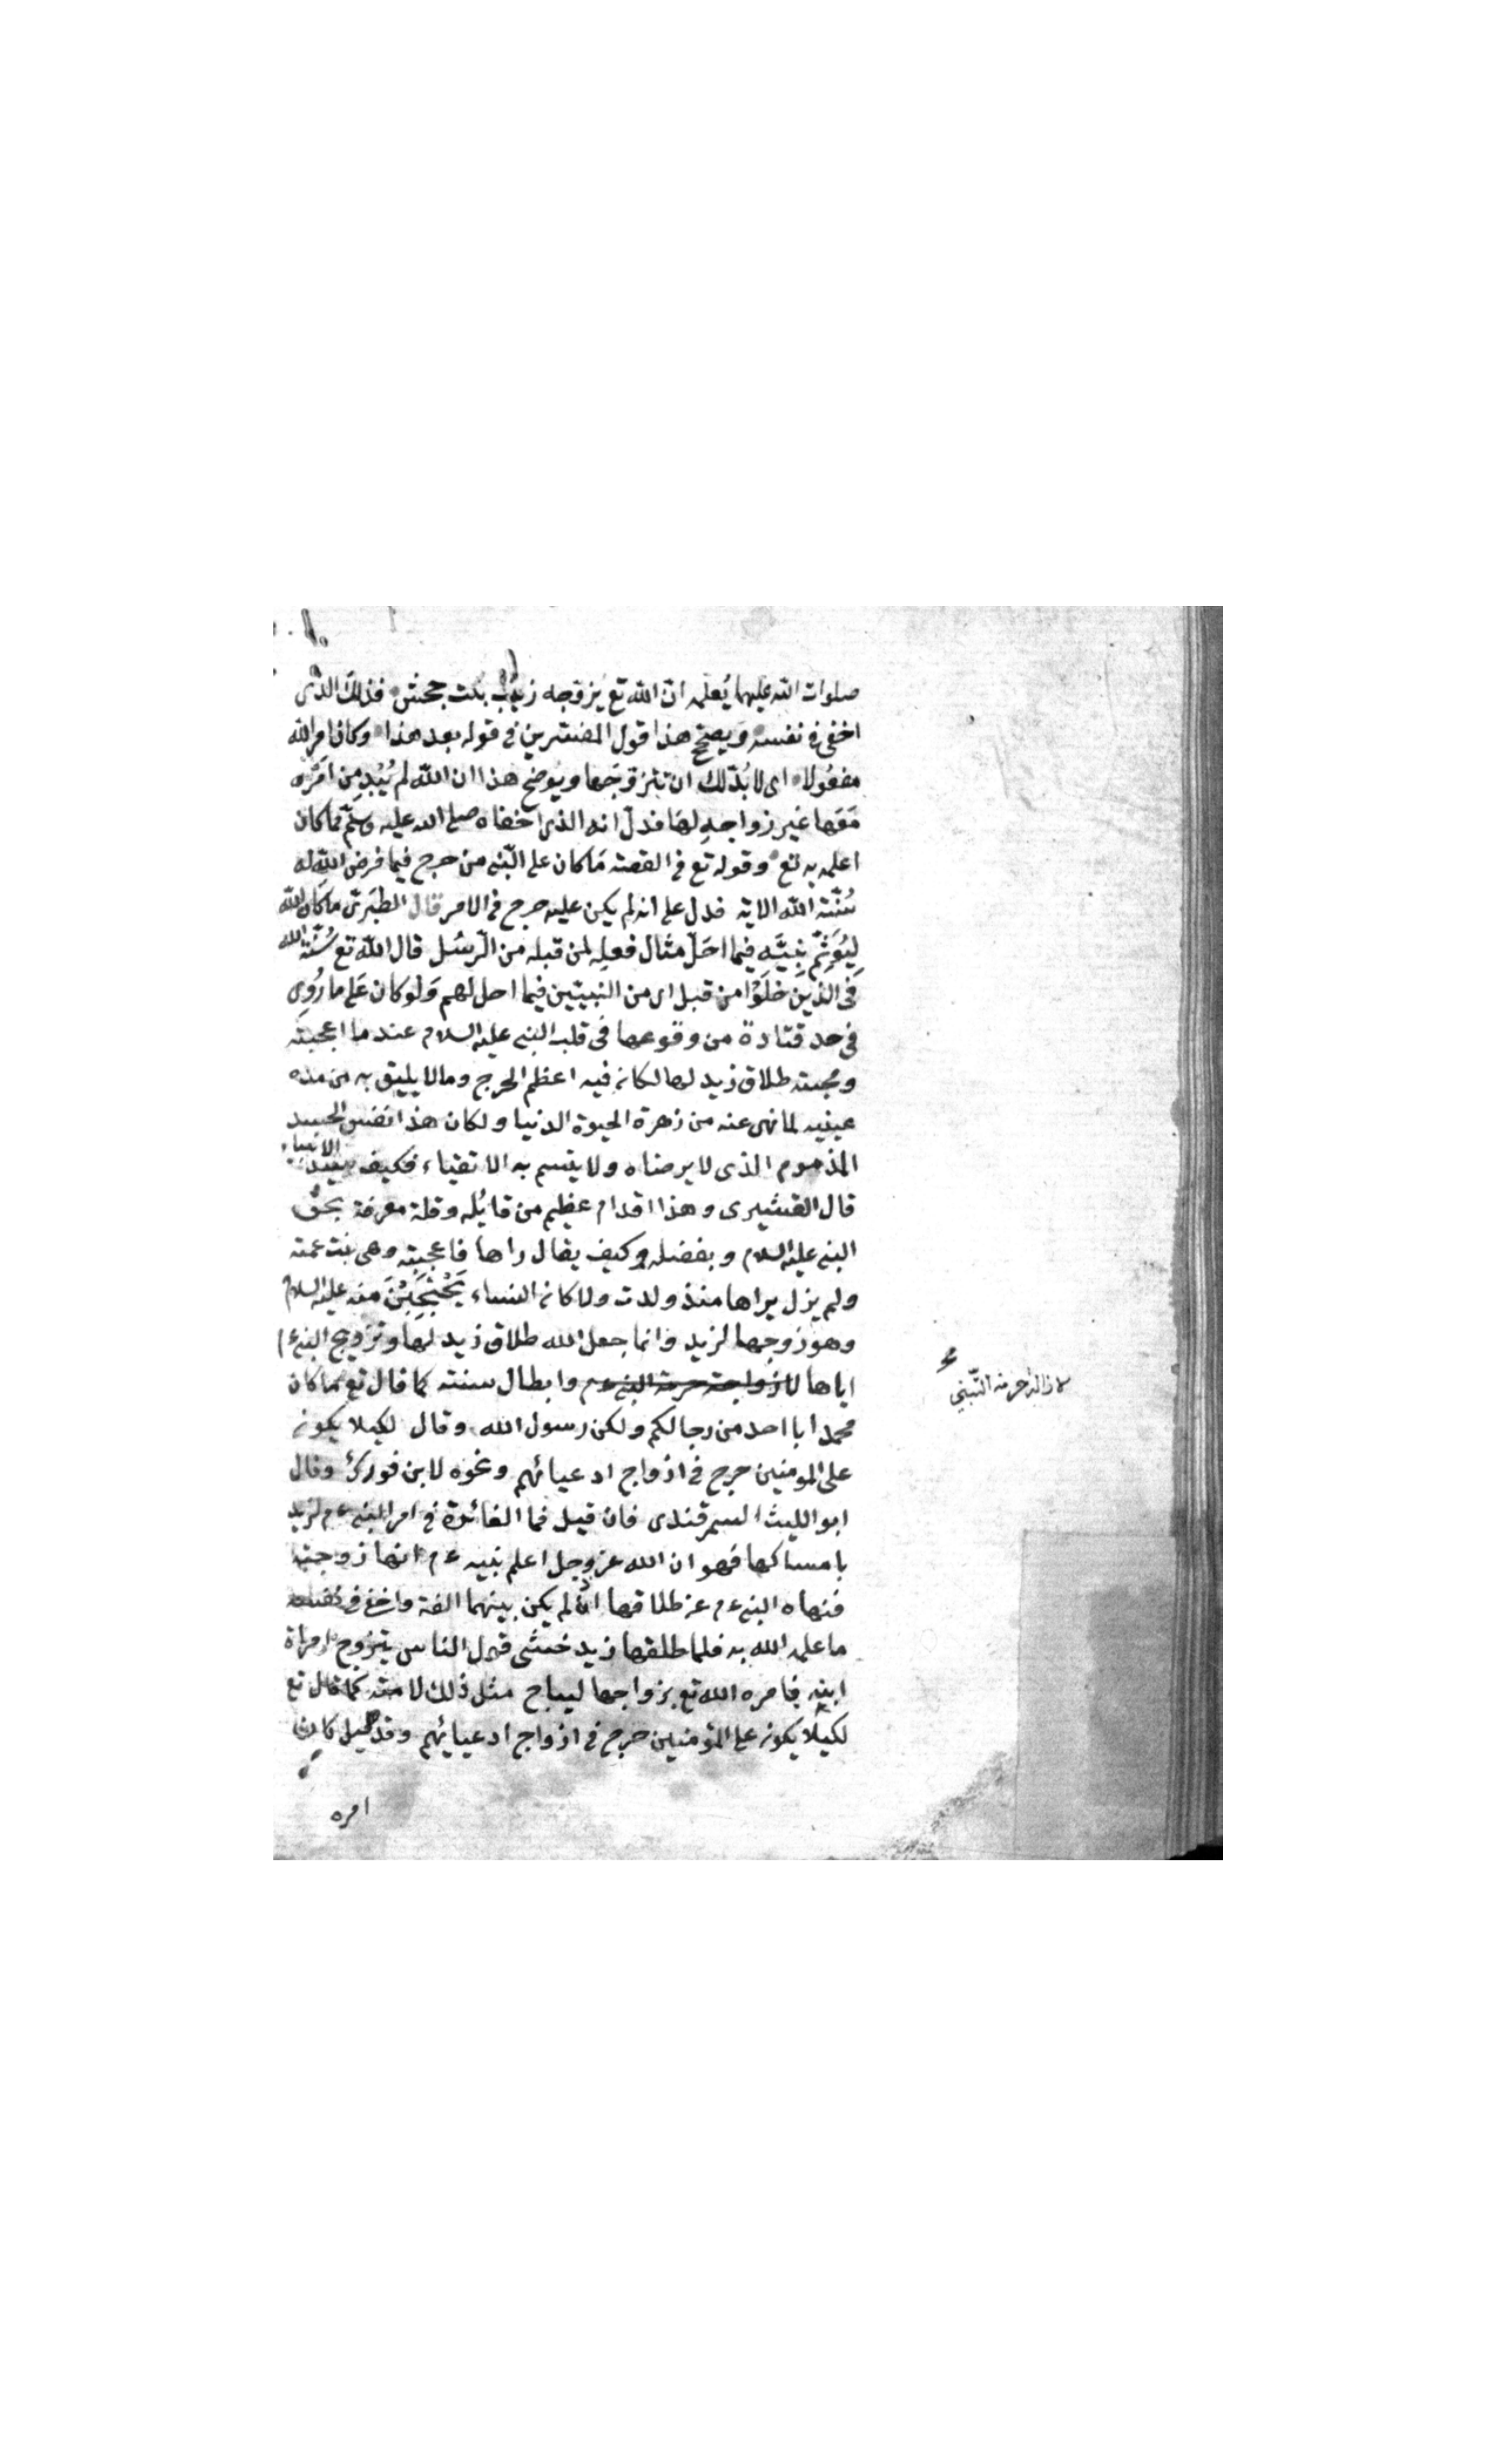 صلوات الله عليهما يُعلمه انّ الله تع يزوّجه زينب بنت جحش فذلك الذى
اخفى فى نفسه ويصحّح هذا قول المفسّرين فى قوله بعد هذا وكان امر الله
مفعُولا اى لا بُدّ لك ان تتزوّجَها ويوضح هذا ان الله لم يُبْدِ مِن اَمْرِه
مَعَها غير زواجهِ لهَا فدلّ انه الذى اخفاه صلى الله عليه وسلّم مما كان
اعلمه به تع وقوله تع فى القصّة مَا كان على النّبى من حرج فيما فرض الله له
سُنّة الله الاية فدل على انه لم يكن عليه حرج فى الامر قال الطبَرىّ ما كان الله
لِيُؤثِمَ نبيَّه فيما احَلّ مثال فعلِه لمن قبله من الرّسُل قال الله تع سُنّة الله
فى الذينَ خلَوْا من قبل اى من النبيّين فيما احل لهم وَلو كان عَلى ما رُوِى
فى حد قتادة من وقوعها فى قلب النبى عليه السلام عند ما اعجبته
ومحبته طلاق زيد لها لكان فيه اعظم الحرج وما لا يليق به من مده
عينيه لما نهى عنه من زهرة الحيوة الدنيا ولكان هذا نفس الحسد
المذموم الذى لا يرضاه ولا يتسم به الا تقياء فكيف سيد الانبياء
قال القشيرى وهذا اقدام عظيم من قايُله وقلة معرفة بحق
النبى عليه السلام وبفضله وكيف يقال راها فاعجبته وهى بنت عمته
ولم يزل يراها منذ ولدت ولا كان النساء يَحْتَجِبْنَ منه عليه السلام
وهو زوجها لزيد وانما جعل الله طلاق زيد لها وتزويج النبى ءم
اياها لازواجته حرمة النبى ءم وابطال سنته كما قال تع ما كان
لازالة حرمة التّبنّى صح
محمد ابا احد من رجالكم ولكن رسول الله وقال لكيلا يكون
على المومنين حرج فى ازواج ادعيائهم ونحوه لابن فورك وقال
ابو الليث السمرقندى فان قيل فما الفائدة فى امر النبى ءم لزيد
بامساكها فهو ان الله عز وجل اعلم نبيه ءم انها زوجته
فنهاه النبى ءم عن طلاقها اذ لم يكن بينهما الفة واخفى فى نفسه
ما علمه الله به فلما طلقها زيد خشى قول الناس يتزوج امراة
ابنه فامره الله تع بزواجها ليباح مثل ذلك لامته كما قال تع
لكيلا يكون على المؤمنين حرج فى ازواج ادعيايهم وقد قيل كان
امره